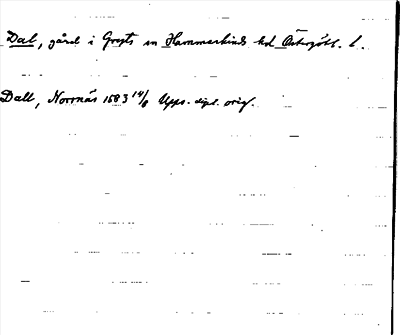 Dal, gård i Gryts sn Hammarkinds hd Östergötl. l.
Dall, Norrnäs 1683 14/8 Upps. dipl. orig.